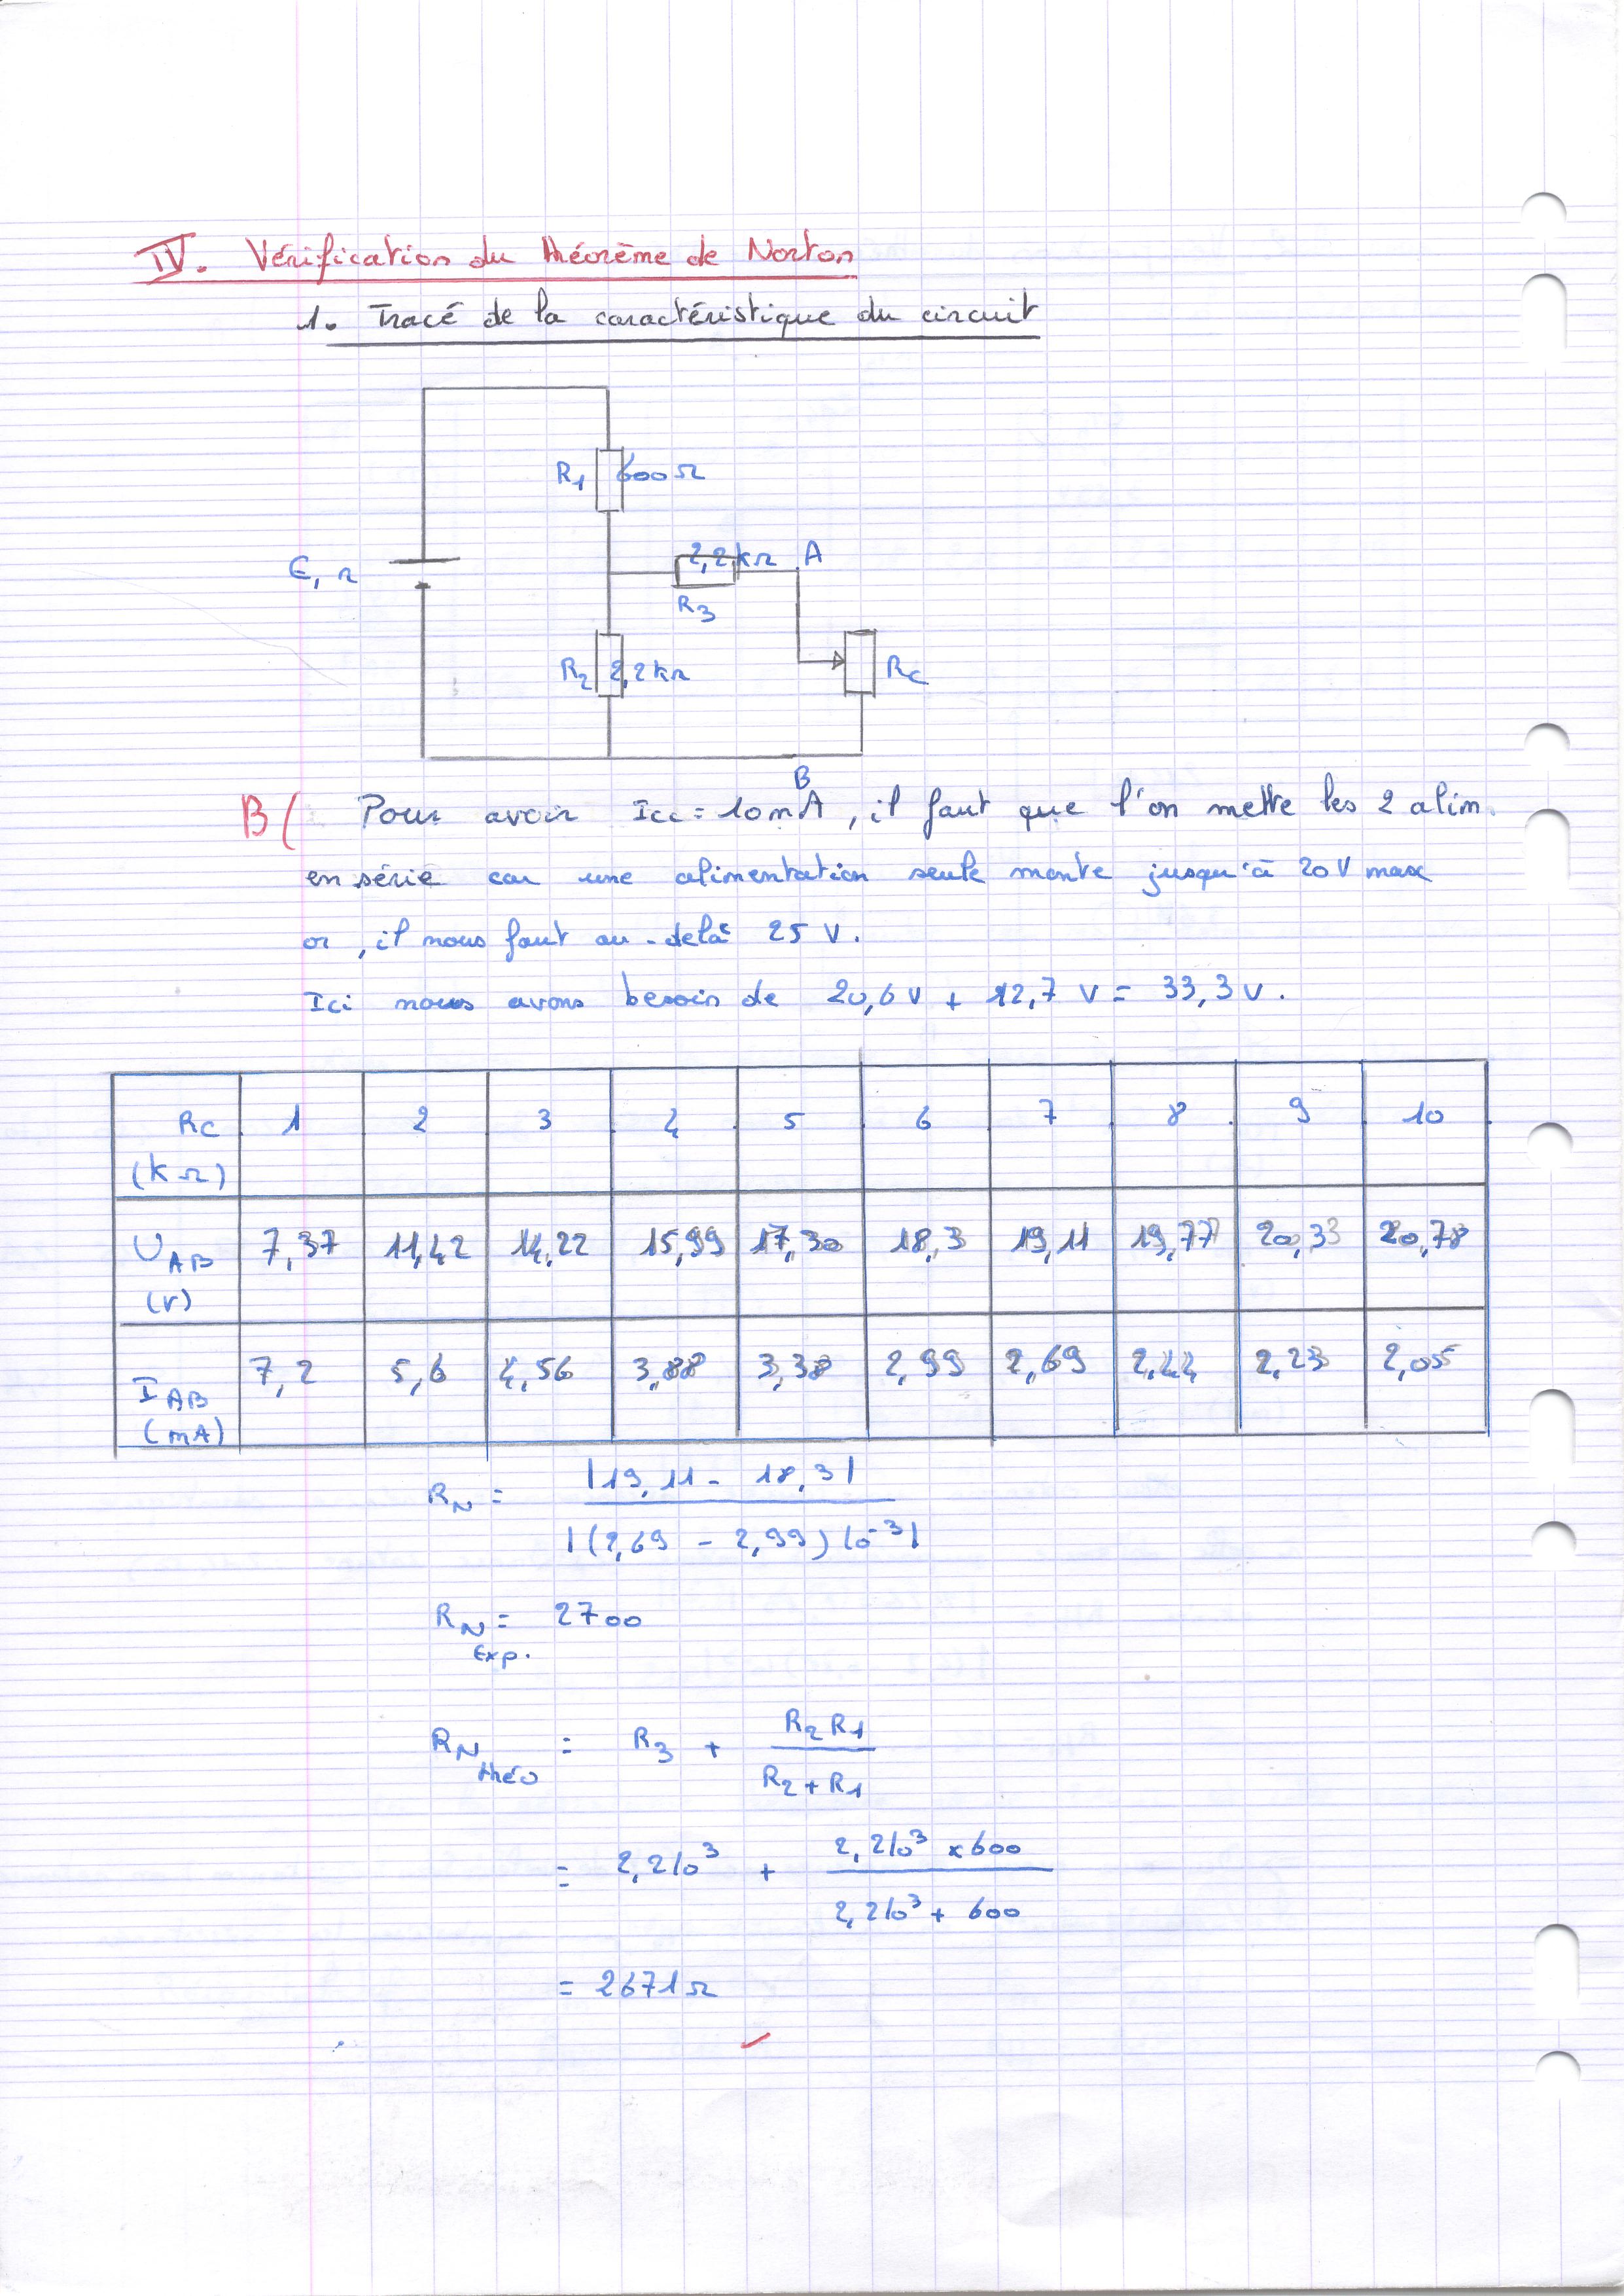 IV. Vérification du théorème de Norton
1. Tracé de la caractéristique du circuit
R1 600Ω
E, r
2,2kΩ A
R3
R2 2,2kΩ
Rc
B
B( Pour avoir Icc = 10mA, il faut que l'on mette les 2 alim.
en série car une alimentation seule monte jusqu'à 20V max
or, il nous faut au-delà 25 V.
Ici nous avons besoin de 20,6V + 12,7 V = 33,3V.
Rc (kΩ) 1 2 3 4 5 6 7 8 9 10
UAB (V) 7,37 11,42 14,22 15,99 17,30 18,3 19,11 19,77 20,33 20,78
IAB (mA) 7,2 5,6 4,56 3,88 3,38 2,99 2,69 2,44 2,23 2,05
RN = |19,11 - 18,3|
|(2,69 - 2,99)10⁻³|
RN Exp. = 2700
RN théo = R3 + R2 R1
R2 + R1
= 2,210³ + 2,210³ x600
2,210³ + 600
= 2671Ω